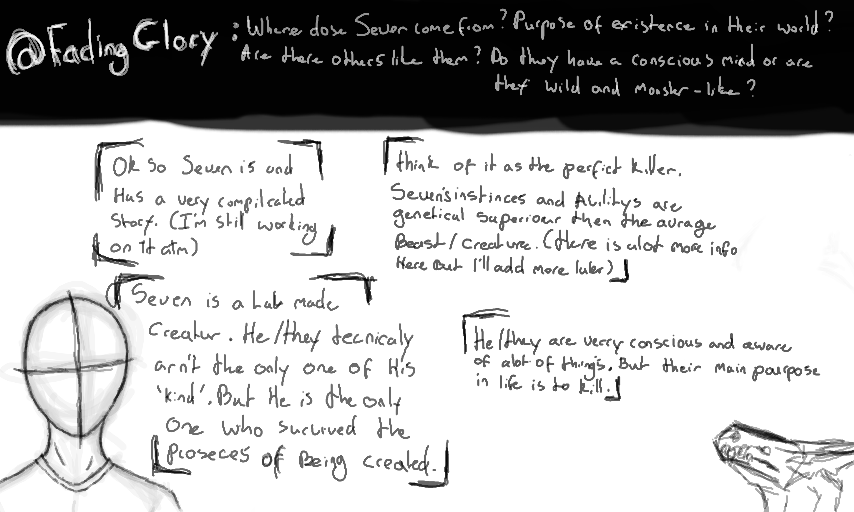 @FadingGlory: Where dose Seven come from? Purpose of existence in their world?
Are there others like them? Do they have a conscious mind or are
they wild and monster-like?
Ok so Seven is and
Has a very complicated
story. (I'm still working
on it atm)
Seven is a Lab made
Creatur. He/they tecnicaly
arn't the only one of His
'kind'. But He is the only
one who survived the
Proseces of Being created.
think of it as the perfict killer.
Seven's instinces and Abilitys are
genetical superiour then the avrage
Beast/creature. (there is alot more info
Here But I'll add more later)
He/they are verry conscious and aware
of alot of things. But their main pourpose
in life is to kill.